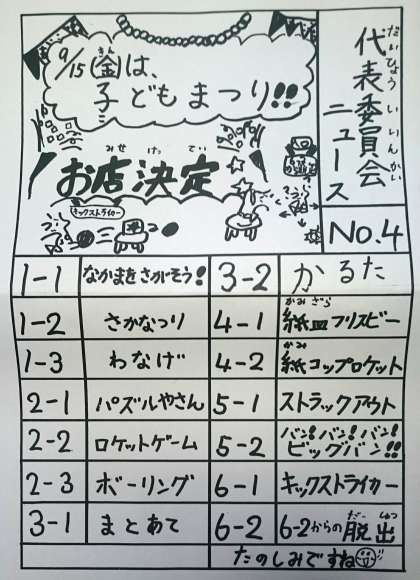 代表委員会
だいひょういいんかい
ニュース
No.4
9/15(金)は、
きん
子どもまつり!!
こ
お店決定
みせけってい
キックストライカー
1-1 なかまをさがそう!
1-2 さかなつり
1-3 わなげ
2-1 パズルやさん
2-2 ロケットゲーム
2-3 ボーリング
3-1 まとあて
3-2 かるた
4-1 紙皿フリスビー
かみざら
4-2 紙コップロケット
かみ
5-1 ストラックアウト
5-2 バン!バン!バン!
ビッグバン!!
6-1 キックストライカー
6-2 6-2からの脱出
だっしゅつ
たのしみですね